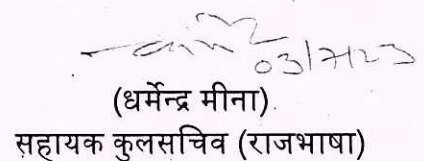 03/7/23
(धर्मेन्द्र मीना)
सहायक कुलसचिव (राजभाषा)